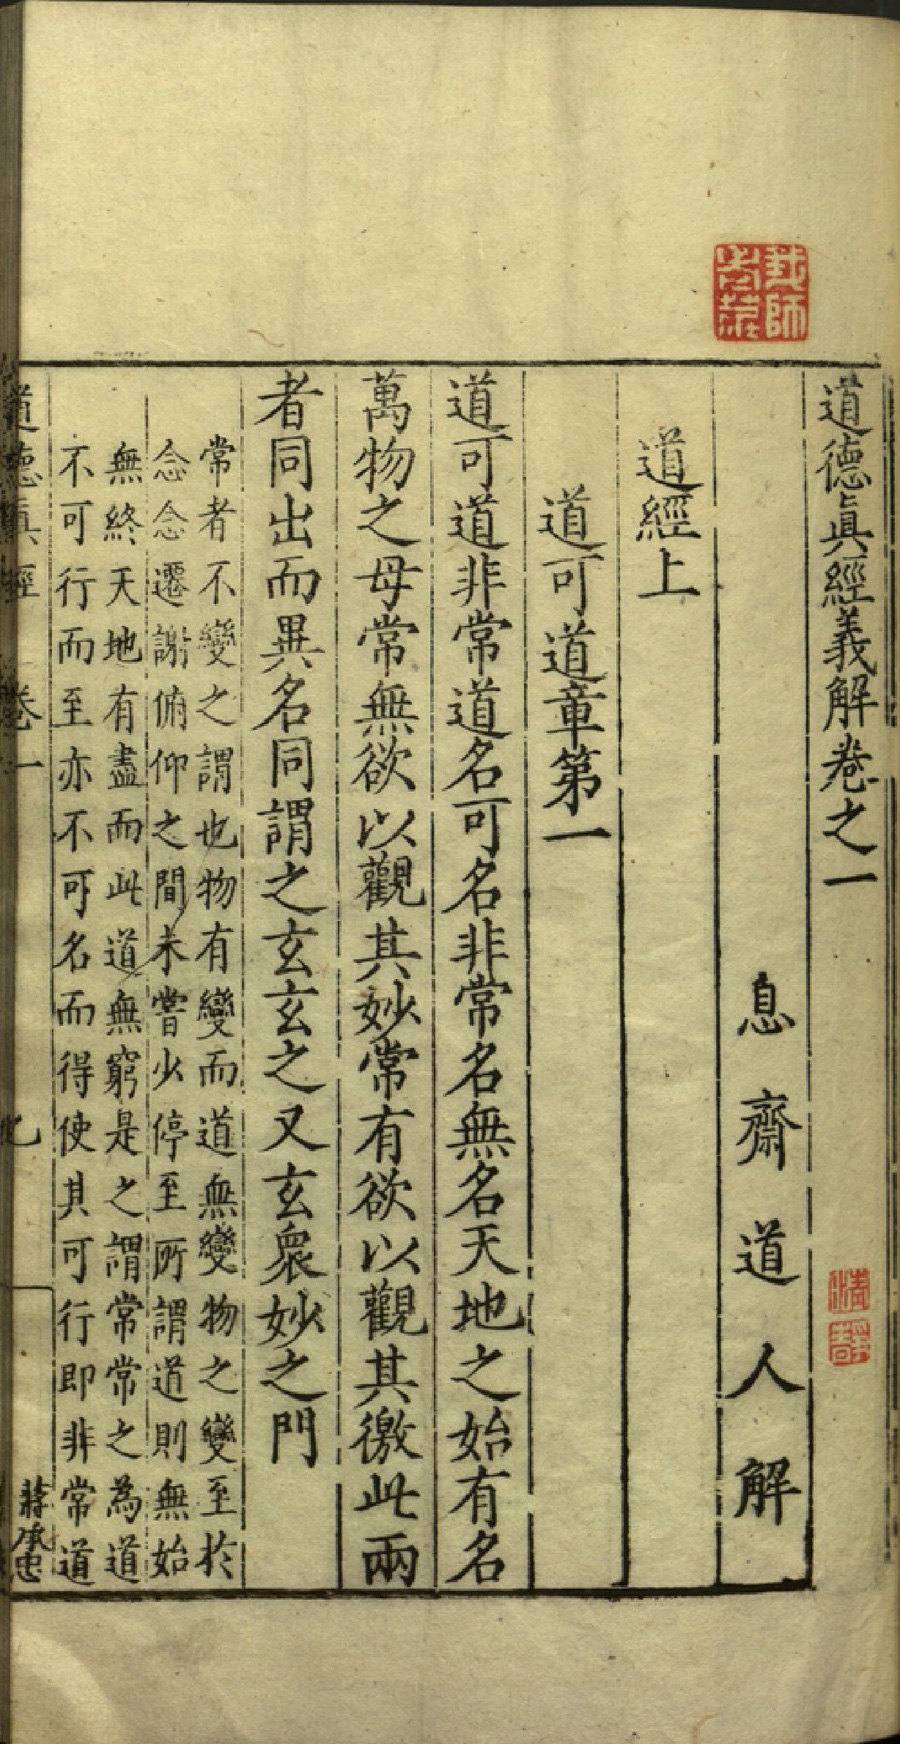 我師
老莊
道德眞經義解卷之一
息齋道人解
道經上
道可道章第一
道可道非常道名可名非常名無名天地之始有名
萬物之母常無欲以觀其妙常有欲以觀其徼此兩
者同出而異名同謂之玄玄之又玄衆妙之門
常者不變之謂也物有變而道無變物之變至於
念念遷謝俯仰之間未嘗少停至所謂道則無始
無終天地有盡而此道無窮是之謂常常之為道
不可行而至亦不可名而得使其可行即非常道
道德眞經 卷一
蔣承忠